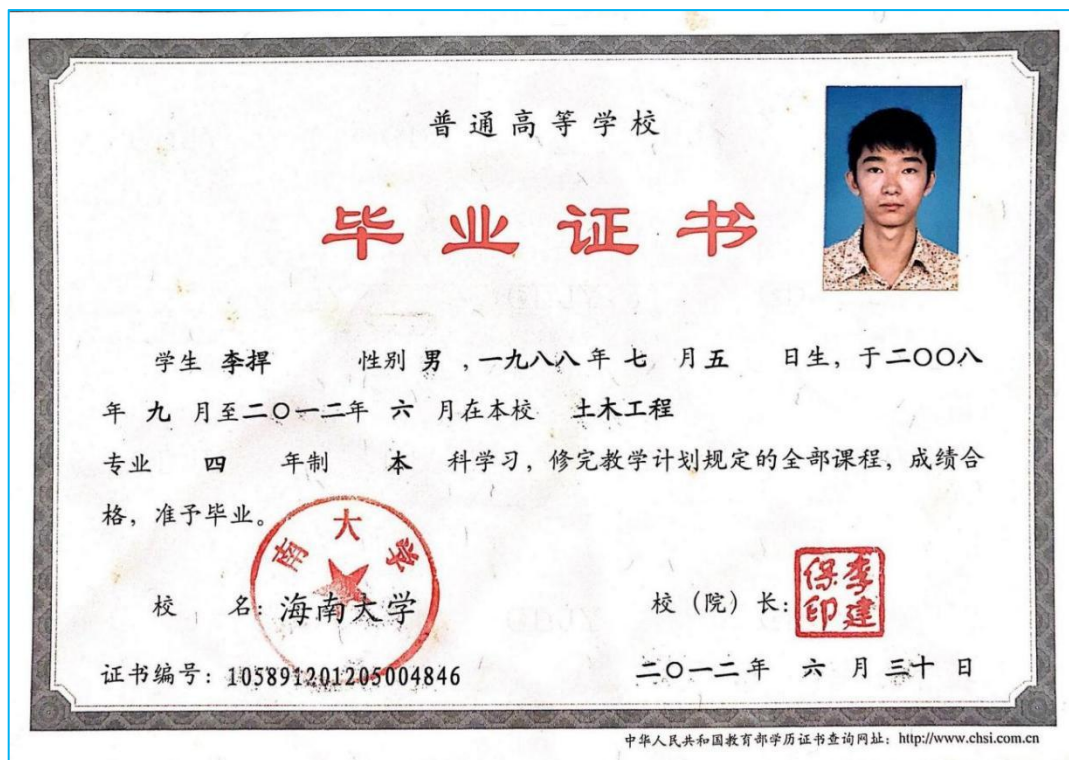 普通高等学校
毕业证书
学生 李捍 性别 男 ，一九八八年 七 月五 日生，于二〇〇八
年 九 月至二〇一二年 六 月在本校 土木工程
专业 四 年制 本 科学习，修完教学计划规定的全部课程，成绩合
格，准予毕业。
南大学
校 名：海南大学
校（院）长：
李建保印
证书编号：105891201205004846
二〇一二年 六 月三十 日
中华人民共和国教育部学历证书查询网址：http://www.chsi.com.cn